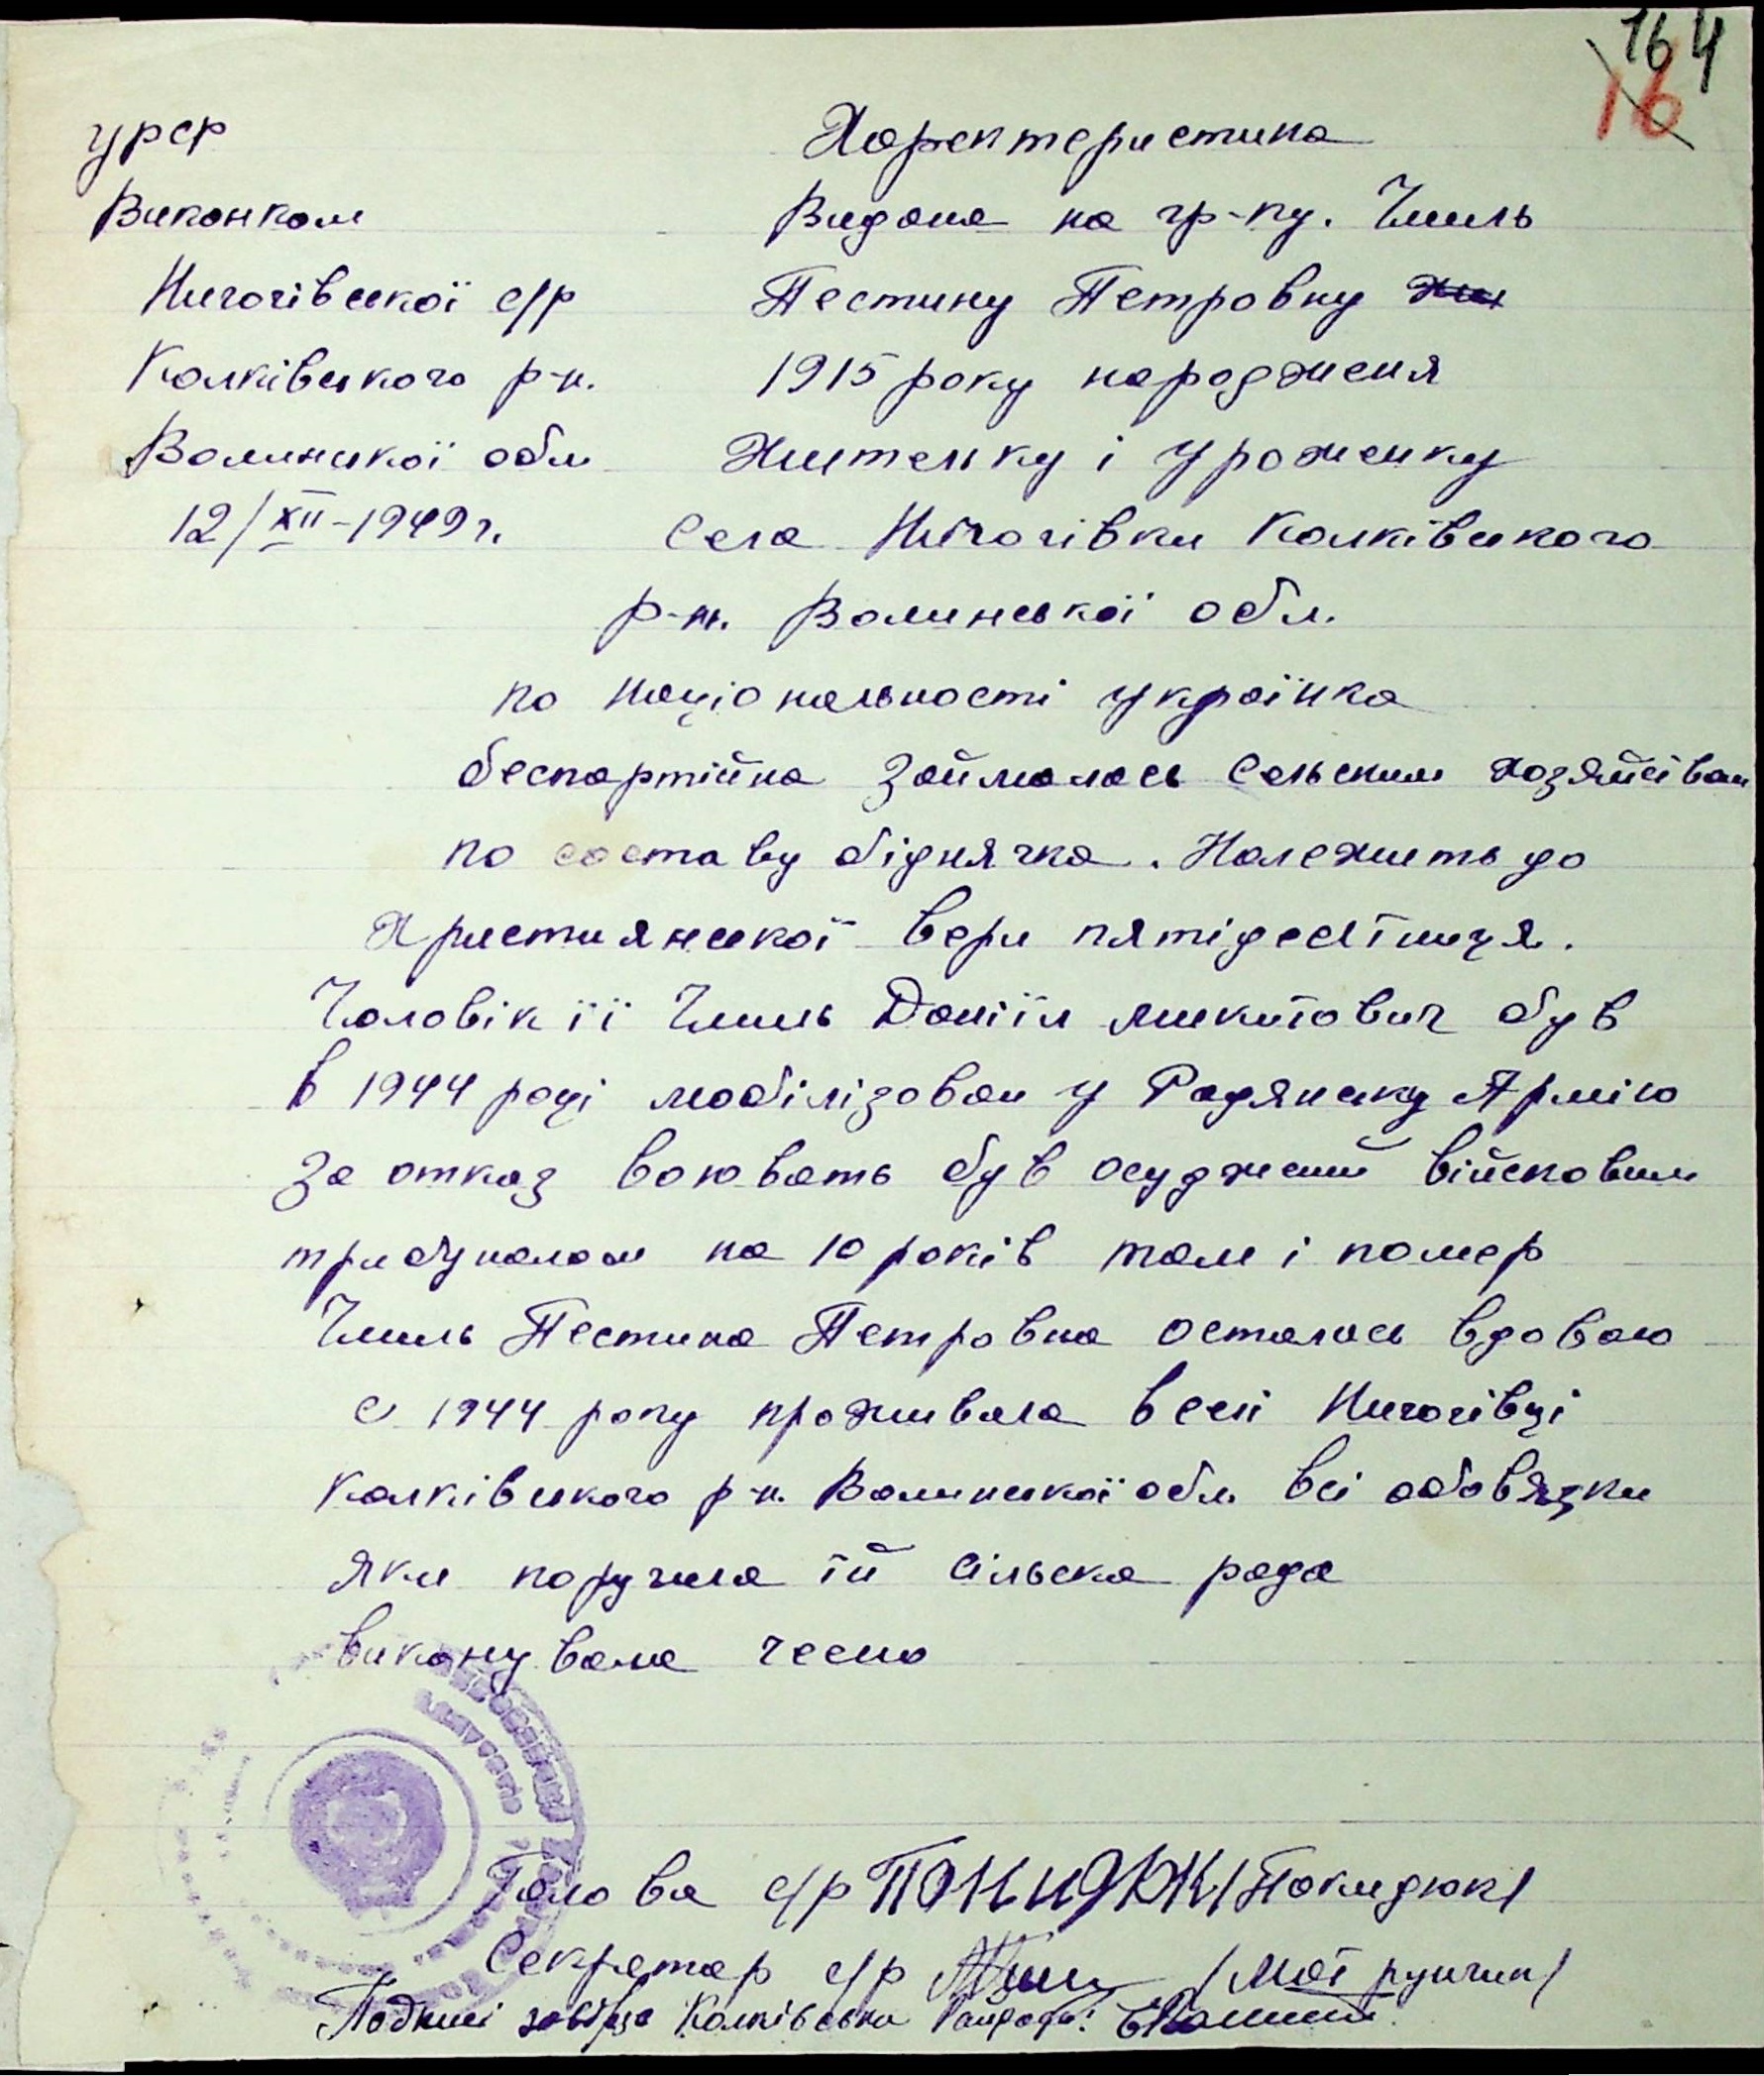 164
16
УРСР
Виконком
Ничогівської с/р
Колківського р-н.
Волинської обл
12/XII-1949 г.
Характеристика
Видана на гр-ку. Чмиль
Пестину Петровну
1915 року народження
Жительку і уроженку
Села Ничогівки Колківського
р-н. Волинської обл.
по національності українка
беспартійна займалась Сельским хозяйсівом
по составу біднячка. Належить до
Християнської вери пятідесятниця.
Чоловік її Чмиль Даніїл Микитович був
в 1944 році мобілізован у Радянську Армію
За отказ воювать був осуджений військовим
трибуналом на 10 років там і помер
Чмиль Пестина Петровна осталась вдовою
с 1944 року проживала в селі Ничогівці
Колківського р-н. Волинської обл. всі обовязки
яки поручила їй сільска рада
виконувала чесно
Голова с/р Покидюк /Покидюк/
Секретар с/р /Мотрунчик/
Подписі завіряє Колківська Райрада: